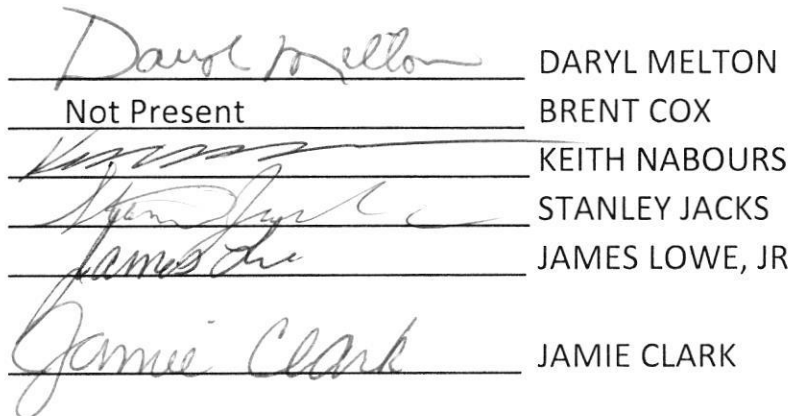 Daryl Melton DARYL MELTON
Not Present BRENT COX
KEITH NABOURS
STANLEY JACKS
James Lowe JAMES LOWE, JR
Jamie Clark JAMIE CLARK